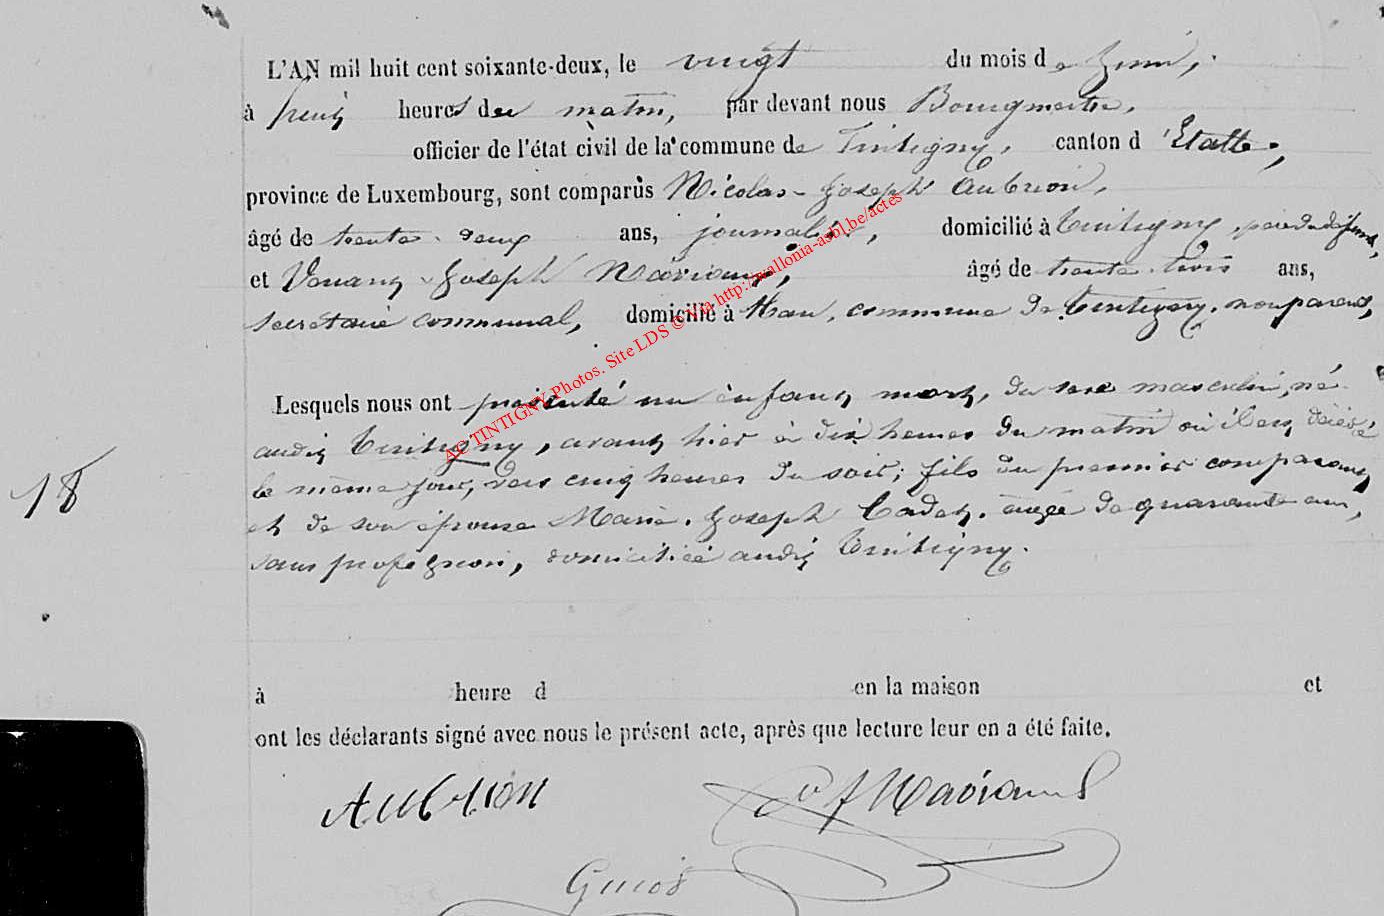 L'AN mil huit cent soixante-deux, le vingt du mois de Juin,
à huit heures du matin, par devant nous Bourgmestre,
officier de l'état civil de la commune de Tintigny, canton d'Etalle,
province de Luxembourg, sont comparus Nicolas-Joseph Aubrion,
âgé de trente-deux ans, journalier, domicilié à Tintigny, père du défunt,
et Venant-Joseph ans, âgé de trente-trois ans,
secrétaire communal, domicilié à Han, commune de Tintigny, non parent,
Lesquels nous ont présenté un enfant mort, du sexe masculin, né
audit Tintigny, avant hier à dix heures du matin où il est décédé
le même jour, vers cinq heures du soir; fils du premier comparant
et de son épouse Marie-Joseph Cadet, âgée de quarante ans,
sans profession, domiciliée audit Tintigny.
18
à heure d en la maison et
ont les déclarants signé avec nous le présent acte, après que lecture leur en a été faite.
AUBRION
Guiot
AC TINTIGNY Photos. Site LDS © Via http://wallonia-asbl.be/actes